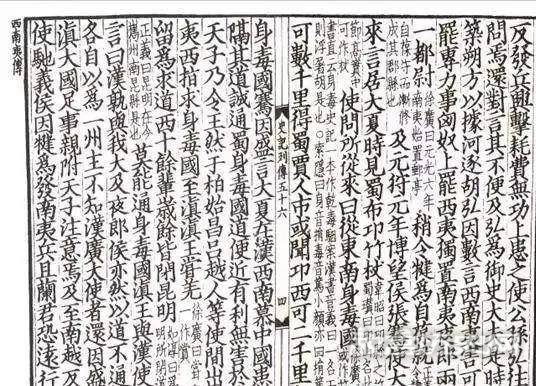 反發兵興擊耗費無功上患之使公孫弘往
問焉還對言其不便及弘為御史大夫是時
築朔方以據河逐胡弘因數言西南夷害可
罷專力事匈奴上罷西夷獨置南夷夜郎兩
一都尉徐廣曰元光六年南夷始置郵亭稍令犍為自葆就
自葆守而漸修成其郡縣也及元狩元年博望侯張騫使大
求言居大夏時見蜀布邛竹杖
節高實中可作杖使問所從來曰從東南身毒國
可數千里得蜀賈人市或聞邛西可二千里
史記列傳五十六
四
身毒國騫因盛言大夏在漢西南慕中國患
隔其道誠通蜀身毒國道便近有利無害於
天子乃令王然于柏始昌呂越人等使間出
夷西指求身毒國至滇滇王嘗羌徐廣曰嘗一作賞
留為求道西十餘輩歲餘皆閉昆明如淳曰為昆明所閉道
正義曰昆明在今嶲州南昆縣是也莫能通身毒國滇王與漢使
言曰漢孰與我大及夜郎侯亦然以道不通
各自以為一州主不知漢廣大使者還因盛
滇大國足事親附天子注意焉及至南越
使馳義侯因犍為發南夷兵且蘭君恐遠行
西南夷傳